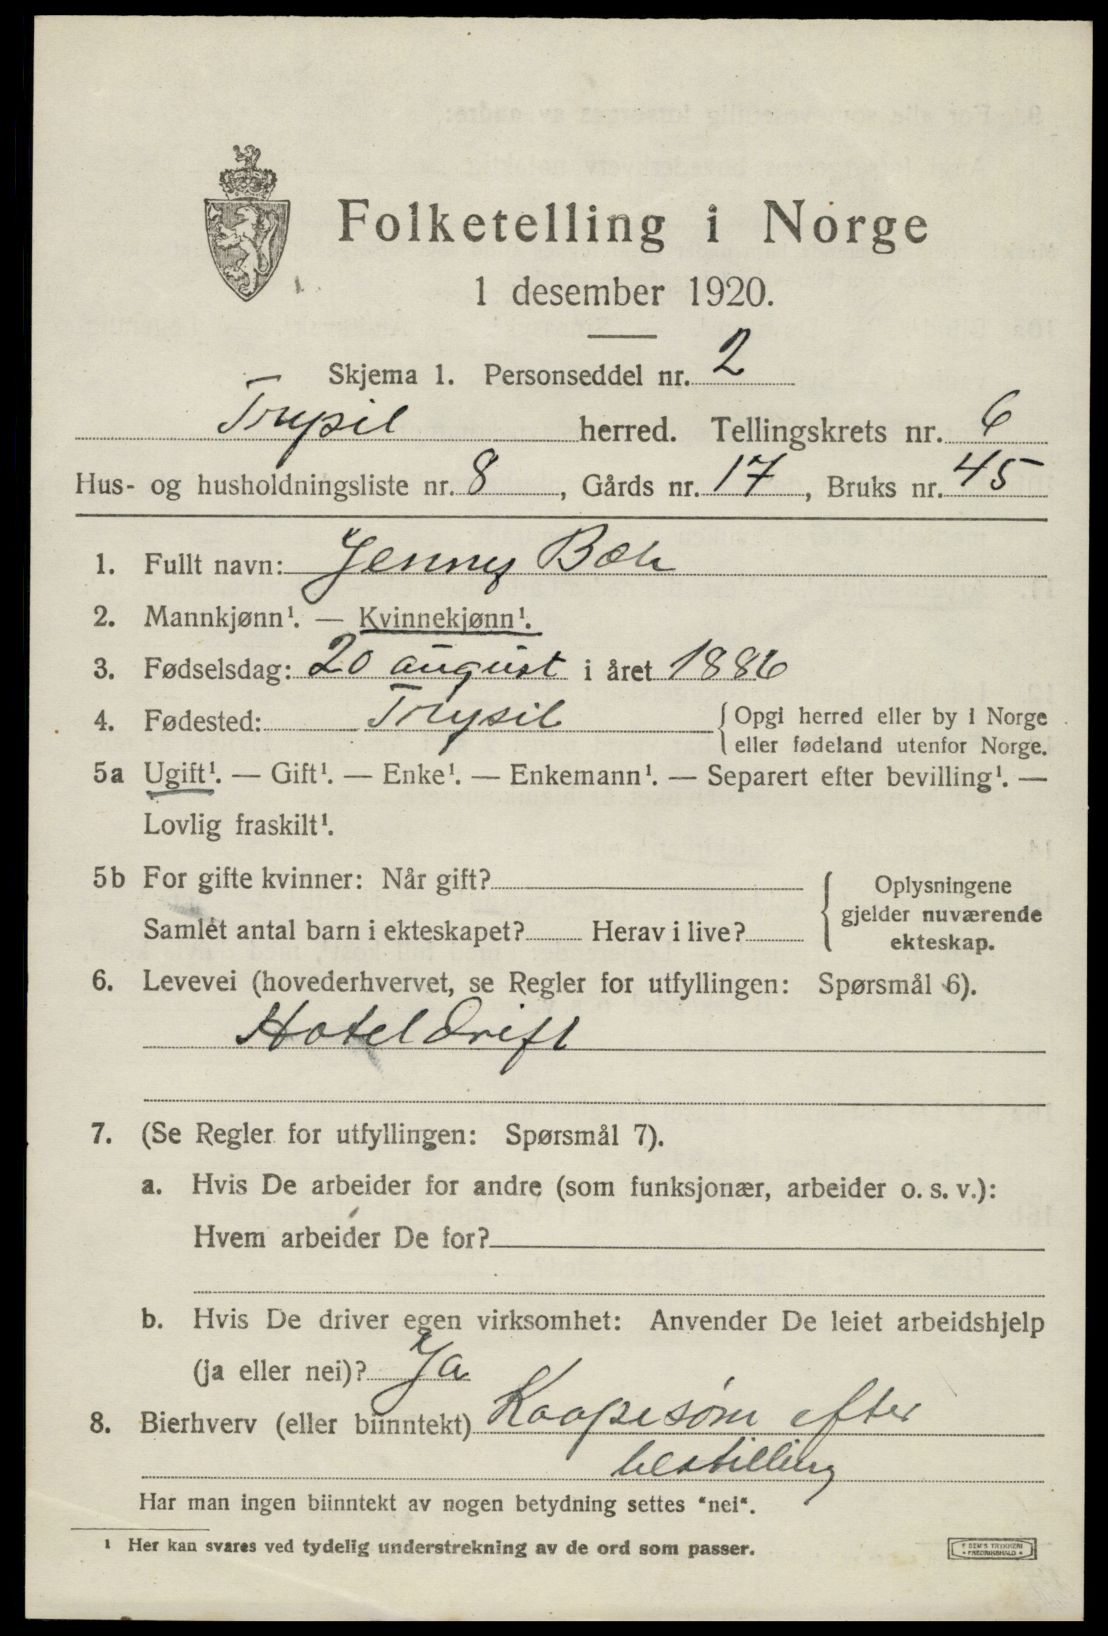 Folketelling i Norge
1 desember 1920.
Skjema 1. Personseddel nr. 2
Trysil herred. Tellingskrets nr. 6
Hus- og husholdningsliste nr. 8, Gårds nr. 17, Bruks nr. 45
1. Fullt navn: Jenny Bæk
2. Mannkjønn¹. — Kvinnekjønn¹.
3. Fødselsdag: 20 august i året 1886
4. Fødested: Trysil { Opgi herred eller by i Norge
eller fødeland utenfor Norge.
5a Ugift¹. — Gift¹. — Enke¹. — Enkemann¹. — Separert efter bevilling¹. —
Lovlig fraskilt¹.
5b For gifte kvinner: Når gift? { Oplysningene
gjelder nuværende
Samlet antal barn i ekteskapet? Herav i live?
ekteskap.
6. Levevei (hovederhvervet, se Regler for utfyllingen: Spørsmål 6).
Hoteldrift
7. (Se Regler for utfyllingen: Spørsmål 7).
a. Hvis De arbeider for andre (som funksjonær, arbeider o. s. v.):
Hvem arbeider De for?
b. Hvis De driver egen virksomhet: Anvender De leiet arbeidshjelp
(ja eller nei)? Ja
8. Bierhverv (eller biinntekt) Kaapesøm efter
bestilling
Har man ingen biinntekt av nogen betydning settes "nei".
¹ Her kan svares ved tydelig understrekning av de ord som passer.